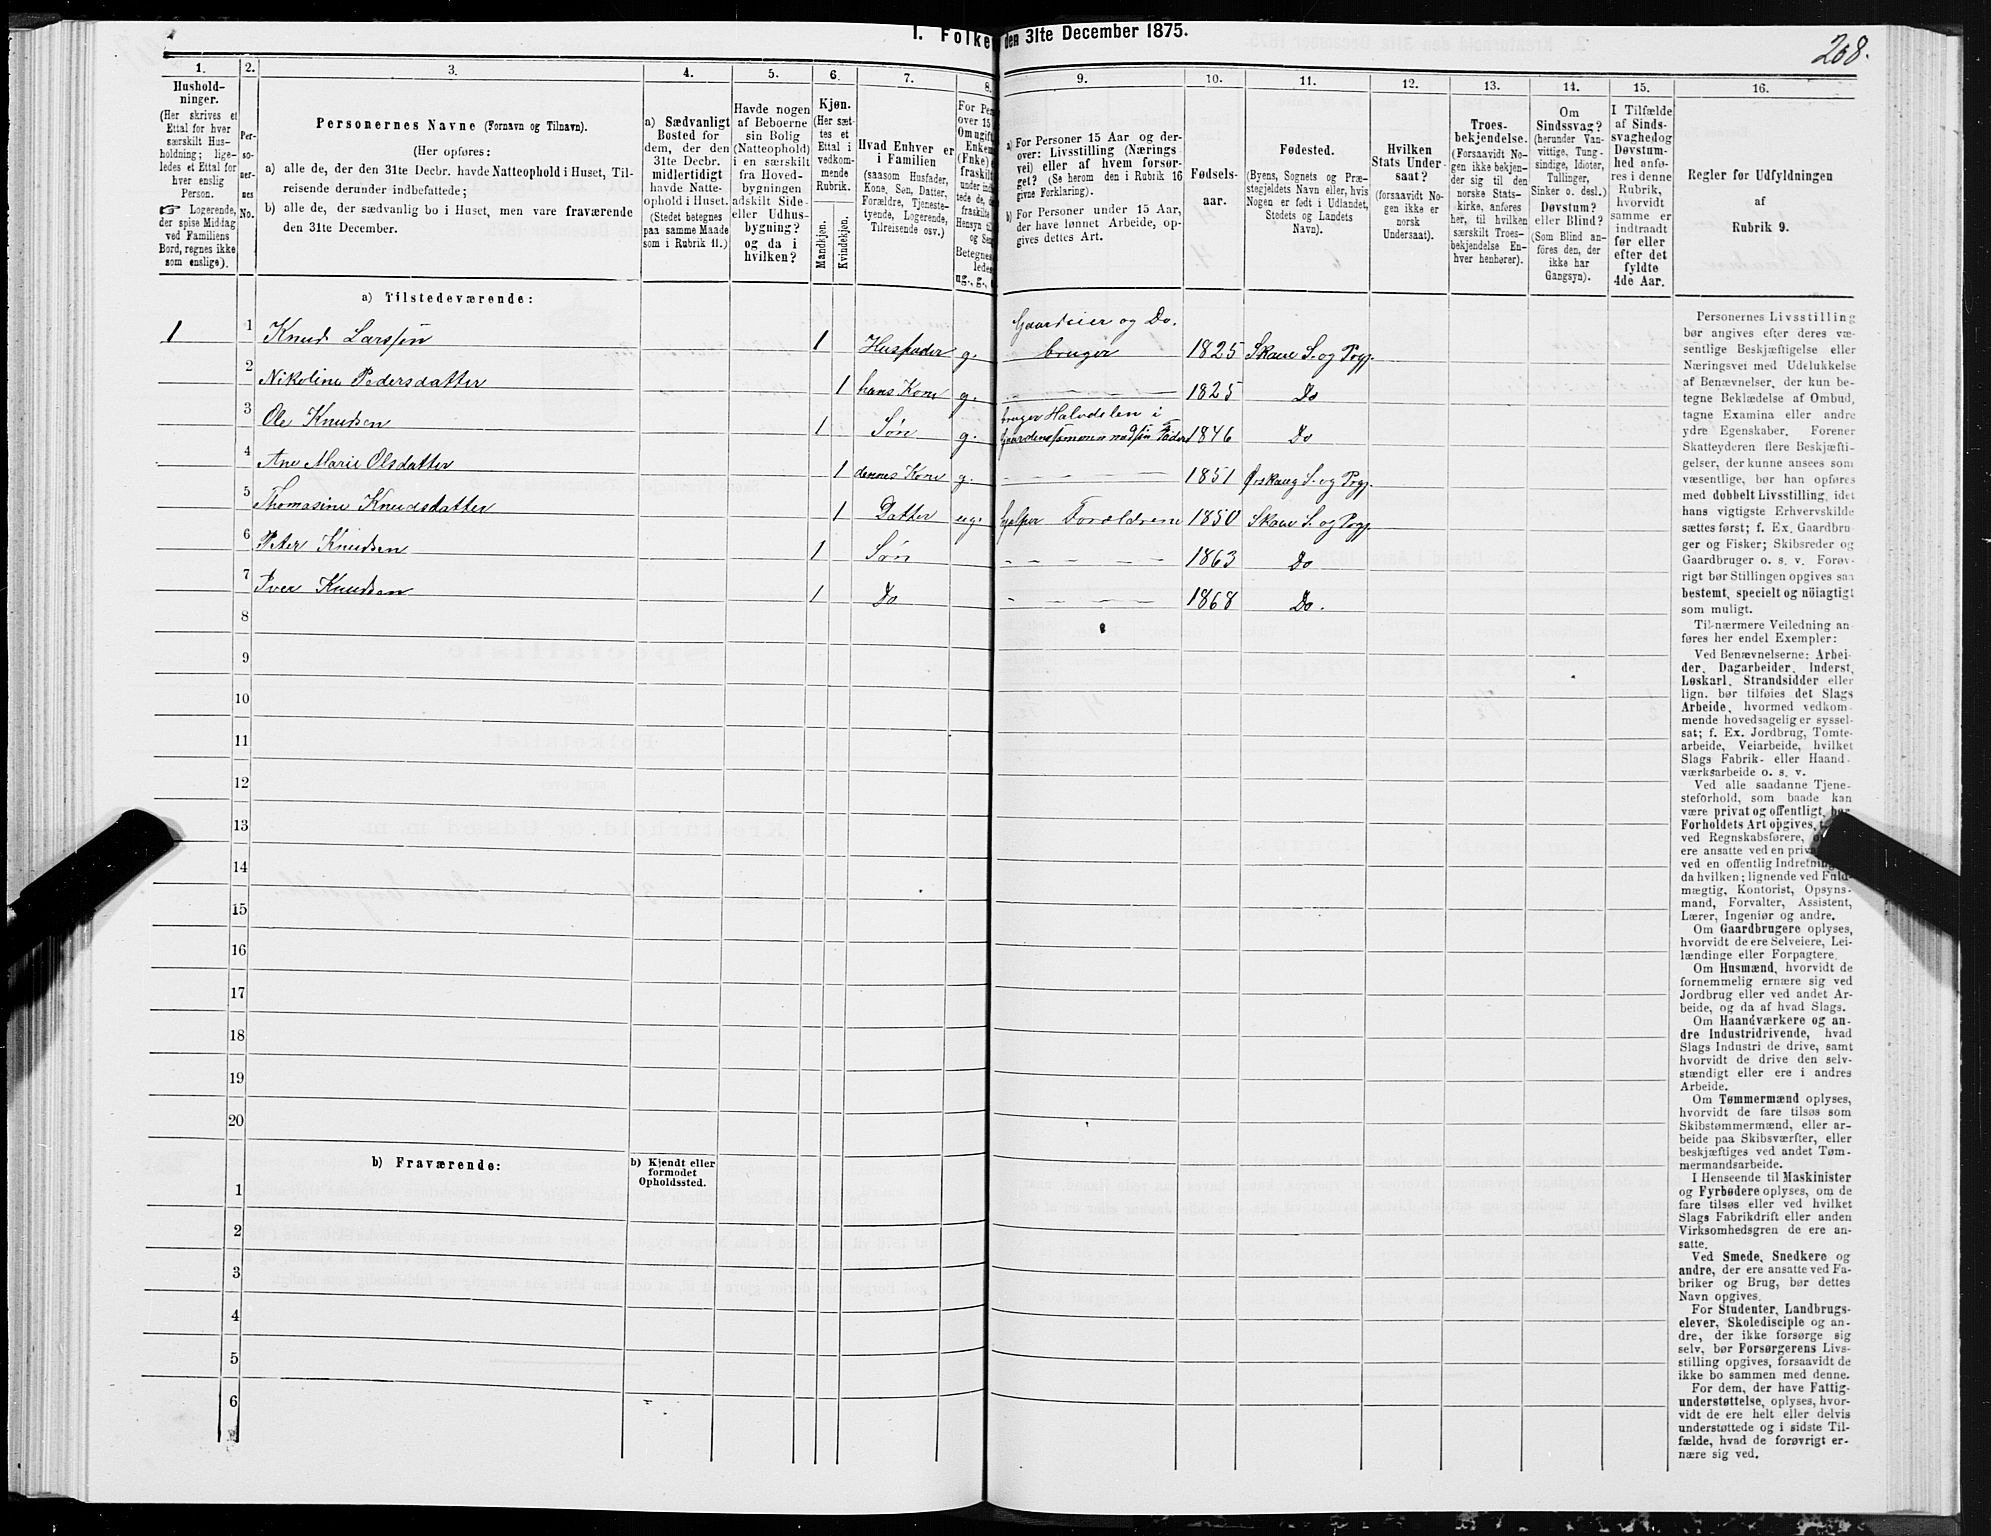 1. Folke den 31te December 1875.
208.
1. 2. 3. 4. 5. 6. 7. 8. 9. 10. 11. 12. 13. 14. 15. 16.
Hushold-
ninger.
(Her skrives et
Ettal for hver
særskilt Hus-
holdning; lige-
ledes et Ettal for
hver enslig
Person.
☞ Logerende,
der spise Middag
ved Familiens
Bord, regnes ikke
som enslige).
Per-
so-
ner-
nes
No.
Personernes Navne (Fornavn og Tilnavn).
(Her opføres:
a) alle de, der den 31te Decbr. havde Natteophold i Huset, Til-
reisende derunder indbefattede;
b) alle de, der sædvanlig bo i Huset, men vare fraværende
den 31te December.
a) Sædvanligt
Bosted for
dem, der den
31te Decbr.
midlertidigt
havde Natte-
ophold i Huset.
(Stedet betegnes
paa samme Maade
som i Rubrik 11.)
Havde nogen
af Beboerne
sin Bolig
(Natteophold)
i en særskilt
fra Hoved-
bygningen
adskilt Side-
eller Udhus-
bygning?
og da i
hvilken?
Kjøn.
(Her sæt-
tes et
Ettal i
vedkom-
mende
Rubrik.
Mandkjøn.
Kvindekjøn.
Hvad Enhver er
i Familien
(saasom Husfader,
Kone, Søn, Datter,
Forældre, Tjeneste-
tyende, Logerende,
Tilreisende osv.)
For Per
over 15
Om ugift
Enkem
(Fnke) e
fraskilt
under indb
tede de, d
fraskilte
Hensyn til
og Sen
Betegnes
ledes
ug., g.,
a) For Personer 15 Aar og der-
over: Livsstilling (Nærings
vei) eller af hvem forsør-
get? (Se herom den i Rubrik 16
givne Forklaring).
b) For Personer under 15 Aar,
der have lønnet Arbeide, op-
gives dettes Art.
Fødsels-
aar.
Fødested.
(Byens, Sognets og Præ-
stegjeldets Navn eller, hvis
Nogen er født i Udlandet,
Stedets og Landets
Navn).
Hvilken
Stats Under-
saat?
(forsaavidt No-
gen ikke er
norsk
Undersaat).
Troes-
bekjendelse.
(Forsaavidt No-
gen ikke bekjen-
der sig til den
norske Stats-
kirke, anføres
her, til hvilken
særskilt Troes-
bekjendelse En-
hver henhører).
Om
Sindssvag?
(herunder Van-
vittige, Tung-
sindige, Idioter,
Tullinger,
Sinker o. desl.)
Døvstum?
eller Blind?
(Som Blind an-
føres den, der
ikke har
Gangsyn).
I Tilfælde
af Sinds-
svaghed og
Døvstum-
hed anfø-
res i denne
Rubrik,
hvorvidt
samme er
indtraadt
før eller
efter det
fyldte
4de Aar.
Regler for Udfyldningen
af
Rubrik 9.
a) Tilstedeværende:
1 1 Knud Larssen 1 Husfader g. Gaardeier og Do.
bruger 1825 Skaue S. og Prgj.
2 Nikoline Pedersdatter 1 hans Kone g. – – – 1825 Do
3 Ole Knudsen 1 Søn g. bruger Halvdelen i
Gaarden sammen med sin Fader 1846 Do
4 Ane Marie Olsdatter 1 dennes Kone g. – – – 1851 Ørskaug S. og Prgj.
5 Thomasine Knudsdatter 1 Datter ug. hjelper Forældrene 1850 Skaue S. og Prgj.
6 Peter Knudsen 1 Søn – – – 1863 Do
7 Iver Knudsen 1 Do – – – 1868 Do.
8
9
10
11
12
13
14
15
16
17
18
19
20
b) Fraværende:
b) Kjendt eller
formodet
Opholdssted.
1
2
3
4
5
6
Personernes Livsstilling
bør angives efter deres væ-
sentlige Beskjæftigelse eller
Næringsvei med Udelukkelse
af Benævnelser, der kun be-
tegne Beklædelse af Ombud,
tagne Examina eller andre
ydre Egenskaber. Forener
Skatteyderen flere Beskjæfti-
gelser, der kunne ansees som
væsentlige, bør han opføres
med dobbelt Livsstilling, idet
hans vigtigste Erhvervskilde
sættes først; f. Ex. Gaardbru-
ger og Fisker; Skibsreder og
Gaardbruger o. s. v. Forøv-
rigt bør Stillingen opgives saa
bestemt, specielt og nöiagtigt
som muligt.
Til nærmere Veiledning an-
føres her endel Exempler:
Ved Benævnelserne: Arbei-
der, Dagarbeider, Inderst,
Løskarl, Strandsidder eller
lign. bør tilføies det Slags
Arbeide, hvormed vedkom-
mende hovedsagelig er syssel-
sat; f. Ex. Jordbrug, Tomte-
arbeide, Veiarbeide, hvilket
Slags Fabrik- eller Haand-
værksarbeide o. s. v.
Ved alle saadanne Tjene-
steforhold, som baade kan
være privat og offentligt, bør
Forholdets Art opgives,
ved Regnskabsførere,
ere ansatte ved en priv
ved en offentlig Indretning
da hvilken; lignende ved Fuld-
mægtig, Kontorist, Opsyns-
mand, Forvalter, Assistent,
Lærer, Ingeniør og andre.
Om Gaardbrugere oplyses,
hvorvidt de ere Selveiere, Lei-
lændinge eller Forpagtere.
Om Husmænd, hvorvidt de
fornemmelig ernære sig ved
Jordbrug eller ved andet Ar-
beide, og da af hvad Slags.
Om Haandværkere og an-
dre Industridrivende, hvad
Slags Industri de drive, samt
hvorvidt de drive den selv-
stændigt eller ere i andres
Arbeide.
Om Tømmermænd oplyses,
hvorvidt de fare tilsøs som
Skibstømmermænd, eller ar-
beide paa Skibsværfter, eller
beskjæftiges ved andet Tøm-
mermandsarbeide.
I Henseende til Maskinister
og Fyrbødere oplyses, om de
fare tilsøs eller ved hvilket
Slags Fabrikdrift eller anden
Virksomhedsgren de ere an-
satte.
Ved Smede, Snedkere og
andre, der ere ansatte ved Fa-
briker og Brug, bør dettes
Navn opgives.
For Studenter, Landbrugs-
elever, Skoledisciple og an-
dre, der ikke forsørge sig
selv, bør Forsørgerens Livs-
stilling opgives, forsaavidt de
ikke bo sammen med denne.
For dem, der have Fattig-
understøttelse, oplyses, hvor-
vidt de ere helt eller delvis
understøttede og i sidste Til-
fælde, hvad de forøvrigt er-
nære sig ved.